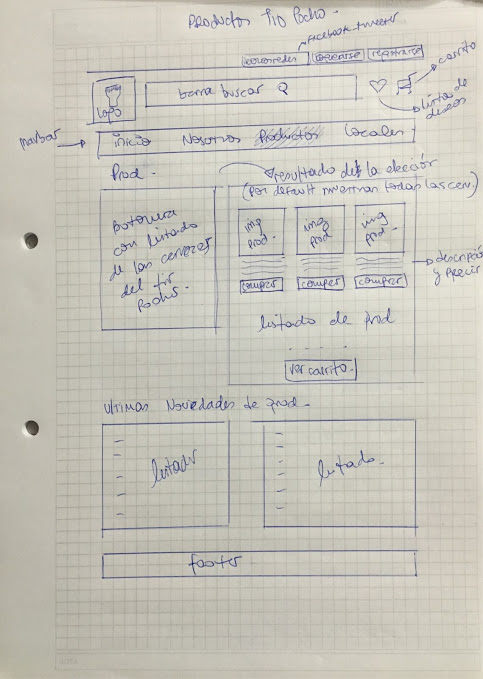 Productos Tío Pocho.
Facebook tweeter
registrarse
carrito
logo
barra buscar
lista de
deseos
navbar
inicio Nosotros Productos Locales
Prod.
resultado de la elección
(por default muestran todas las cerv.)
Botonera
con listado
de las cervezas
del tío
Pocho.
img
prod.
img
prod
img
prod.
descripción
y precio
comprar comprar comprar
listado de prod
....
ver carrito.
Ultimas Novedades de prod.
listado
listado.
footer